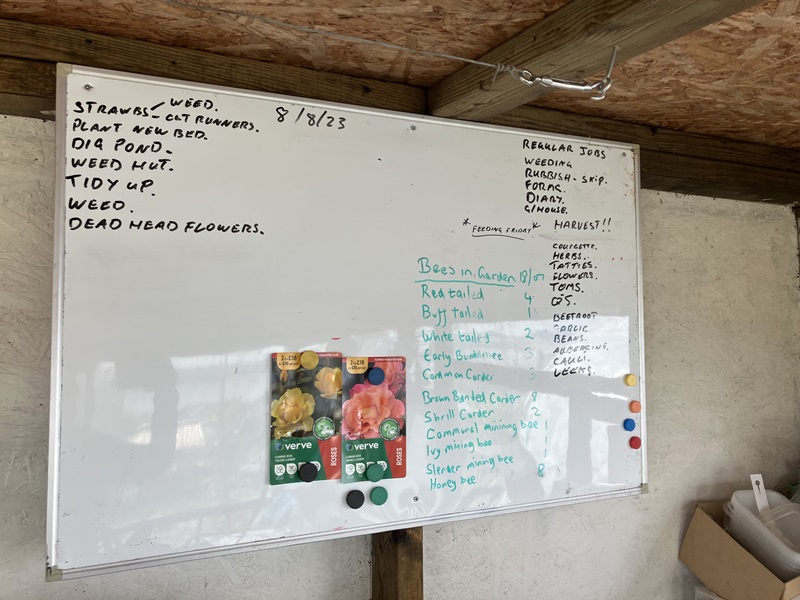 STRAWBS/ WEED.
- CUT RUNNERS.
PLANT NEW BED.
DIG POND.
WEED HUT.
TIDY UP.
WEED.
DEAD HEAD FLOWERS.
8/8/23
REGULAR JOBS
WEEDING
RUBBISH - SKIP.
FORAG.
DIARY.
G/HOUSE.
* FEEDING FRIDAY *
HARVEST!!
COURGETTE.
HERBS.
TATTIES.
FLOWERS.
TOMS.
BEETROOT
GARLIC
BEANS.
AUBERGINE.
CAULI.
LEEKS.
Bees in Garden 18/07
Red tailed 4
Buff tailed 1
White tailed 2
Early Bumblebee 3
Common Carder 3
Brown Banded Carder 8
Shrill Carder 2
Communal minining bee 1
Ivy mining bee 1
Slender mining bee 1
Honey bee 8
2 for £10
verve
ROSES
2 for £10
verve
ROSES